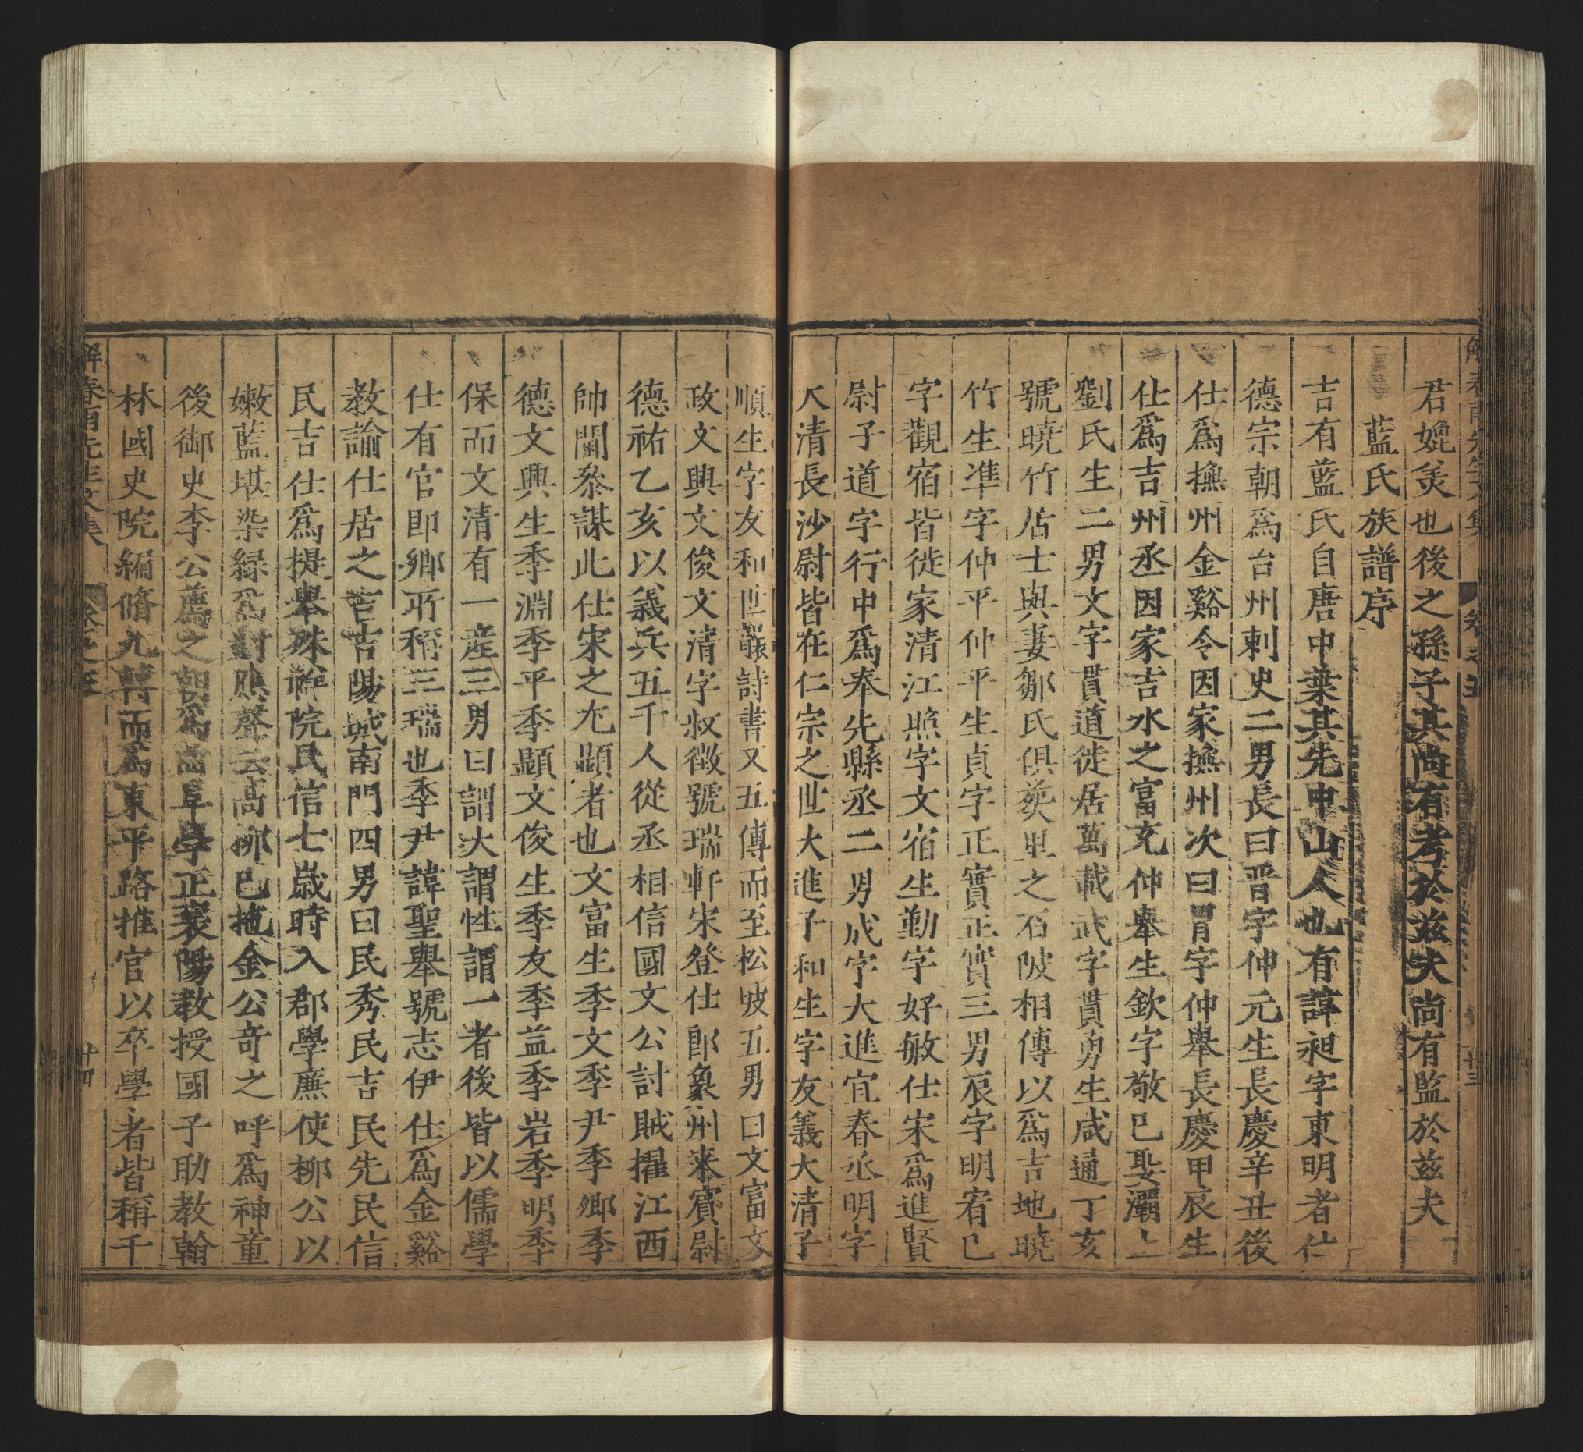 解春雨先生文集 卷之五 廿三
君媲羙也後之孫子其尚有考於兹夫尚有監於兹夫
藍氏族譜序
吉有藍氏自唐中葉其先中山人也有諱昶字東明者仕
德宗朝爲台州刺史二男長曰晋字仲元生長慶辛丑後
仕爲撫州金谿令因家撫州次曰胃字仲舉長慶甲辰生
仕爲吉州丞因家吉水之富充仲舉生欽字敬巳娶灞上
劉氏生二男文字貫道徙居萬載武字貫勇生咸通丁亥
號曉竹居士與妻鄒氏俱塟里之石陂相傳以爲吉地曉
竹生準字仲平仲平生貞字正實正實三男辰字明宥巳
字觀宿皆徙家清江照字文宿生勤字好敏仕宋爲進賢
尉子道字行中爲奉先縣丞二男成字大進宜春丞明字
大清長沙尉皆在仁宗之世大進子和生字友義大清子
順生字友和世嚴詩書又五傳而至松坡五男曰文富文
政文興文俊文清字叔徵號瑞軒宋登仕郎象州來賓尉
德祐乙亥以義兵五千人從丞相信國文公討賊擢江西
帥閫叅謀此仕宋之尤顯者也文富生季文季尹季鄉季
德文興生季淵季平季顯文俊生季友季益季岩季明季
保而文清有一産三男曰謂夫謂性謂一者後皆以儒學
仕有官即鄉所稱三瑞也季尹諱聖舉號志伊仕爲金谿
教諭仕居之吉吉陽城南門四男曰民秀民吉民先民信
民吉仕爲提舉殊祥院民信七歲時入郡學廉使柳公以
嫩藍堪染緑爲對賡聲云髙柳巳拖金公奇之呼爲神童
後御史李公薦之朝爲髙阜學正襄陽教授國子助教翰
林國史院編脩九轉而爲東平路推官以卒學者皆稱千
解春雨先生文集 卷之五 廿四